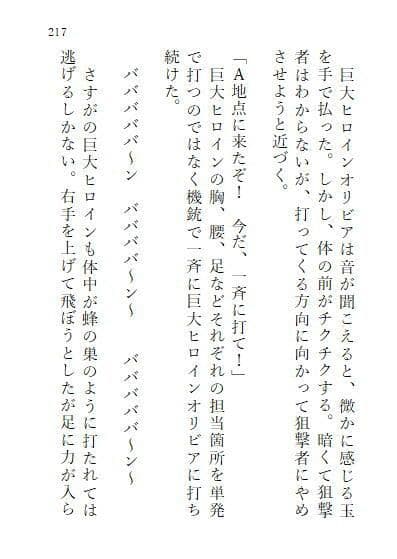 217
巨大ヒロインオリビアは音が聞こえると、微かに感じる玉
を手で払った。しかし、体の前がチクチクする。暗くて狙撃
者はわからないが、打ってくる方向に向かって狙撃者にやめ
させようと近づく。
「A地点に来たぞ！　今だ、一斉に打て！」
巨大ヒロインの胸、腰、足などそれぞれの担当箇所を単発
で打つのではなく機銃で一斉に巨大ヒロインオリビアに打ち
続けた。
ババババババ〜ン　ババババ〜ン〜　ババババババ〜ン〜
さすがの巨大ヒロインも体中が蜂の巣のように打たれては
逃げるしかない。右手を上げて飛ぼうとしたが足に力が入ら